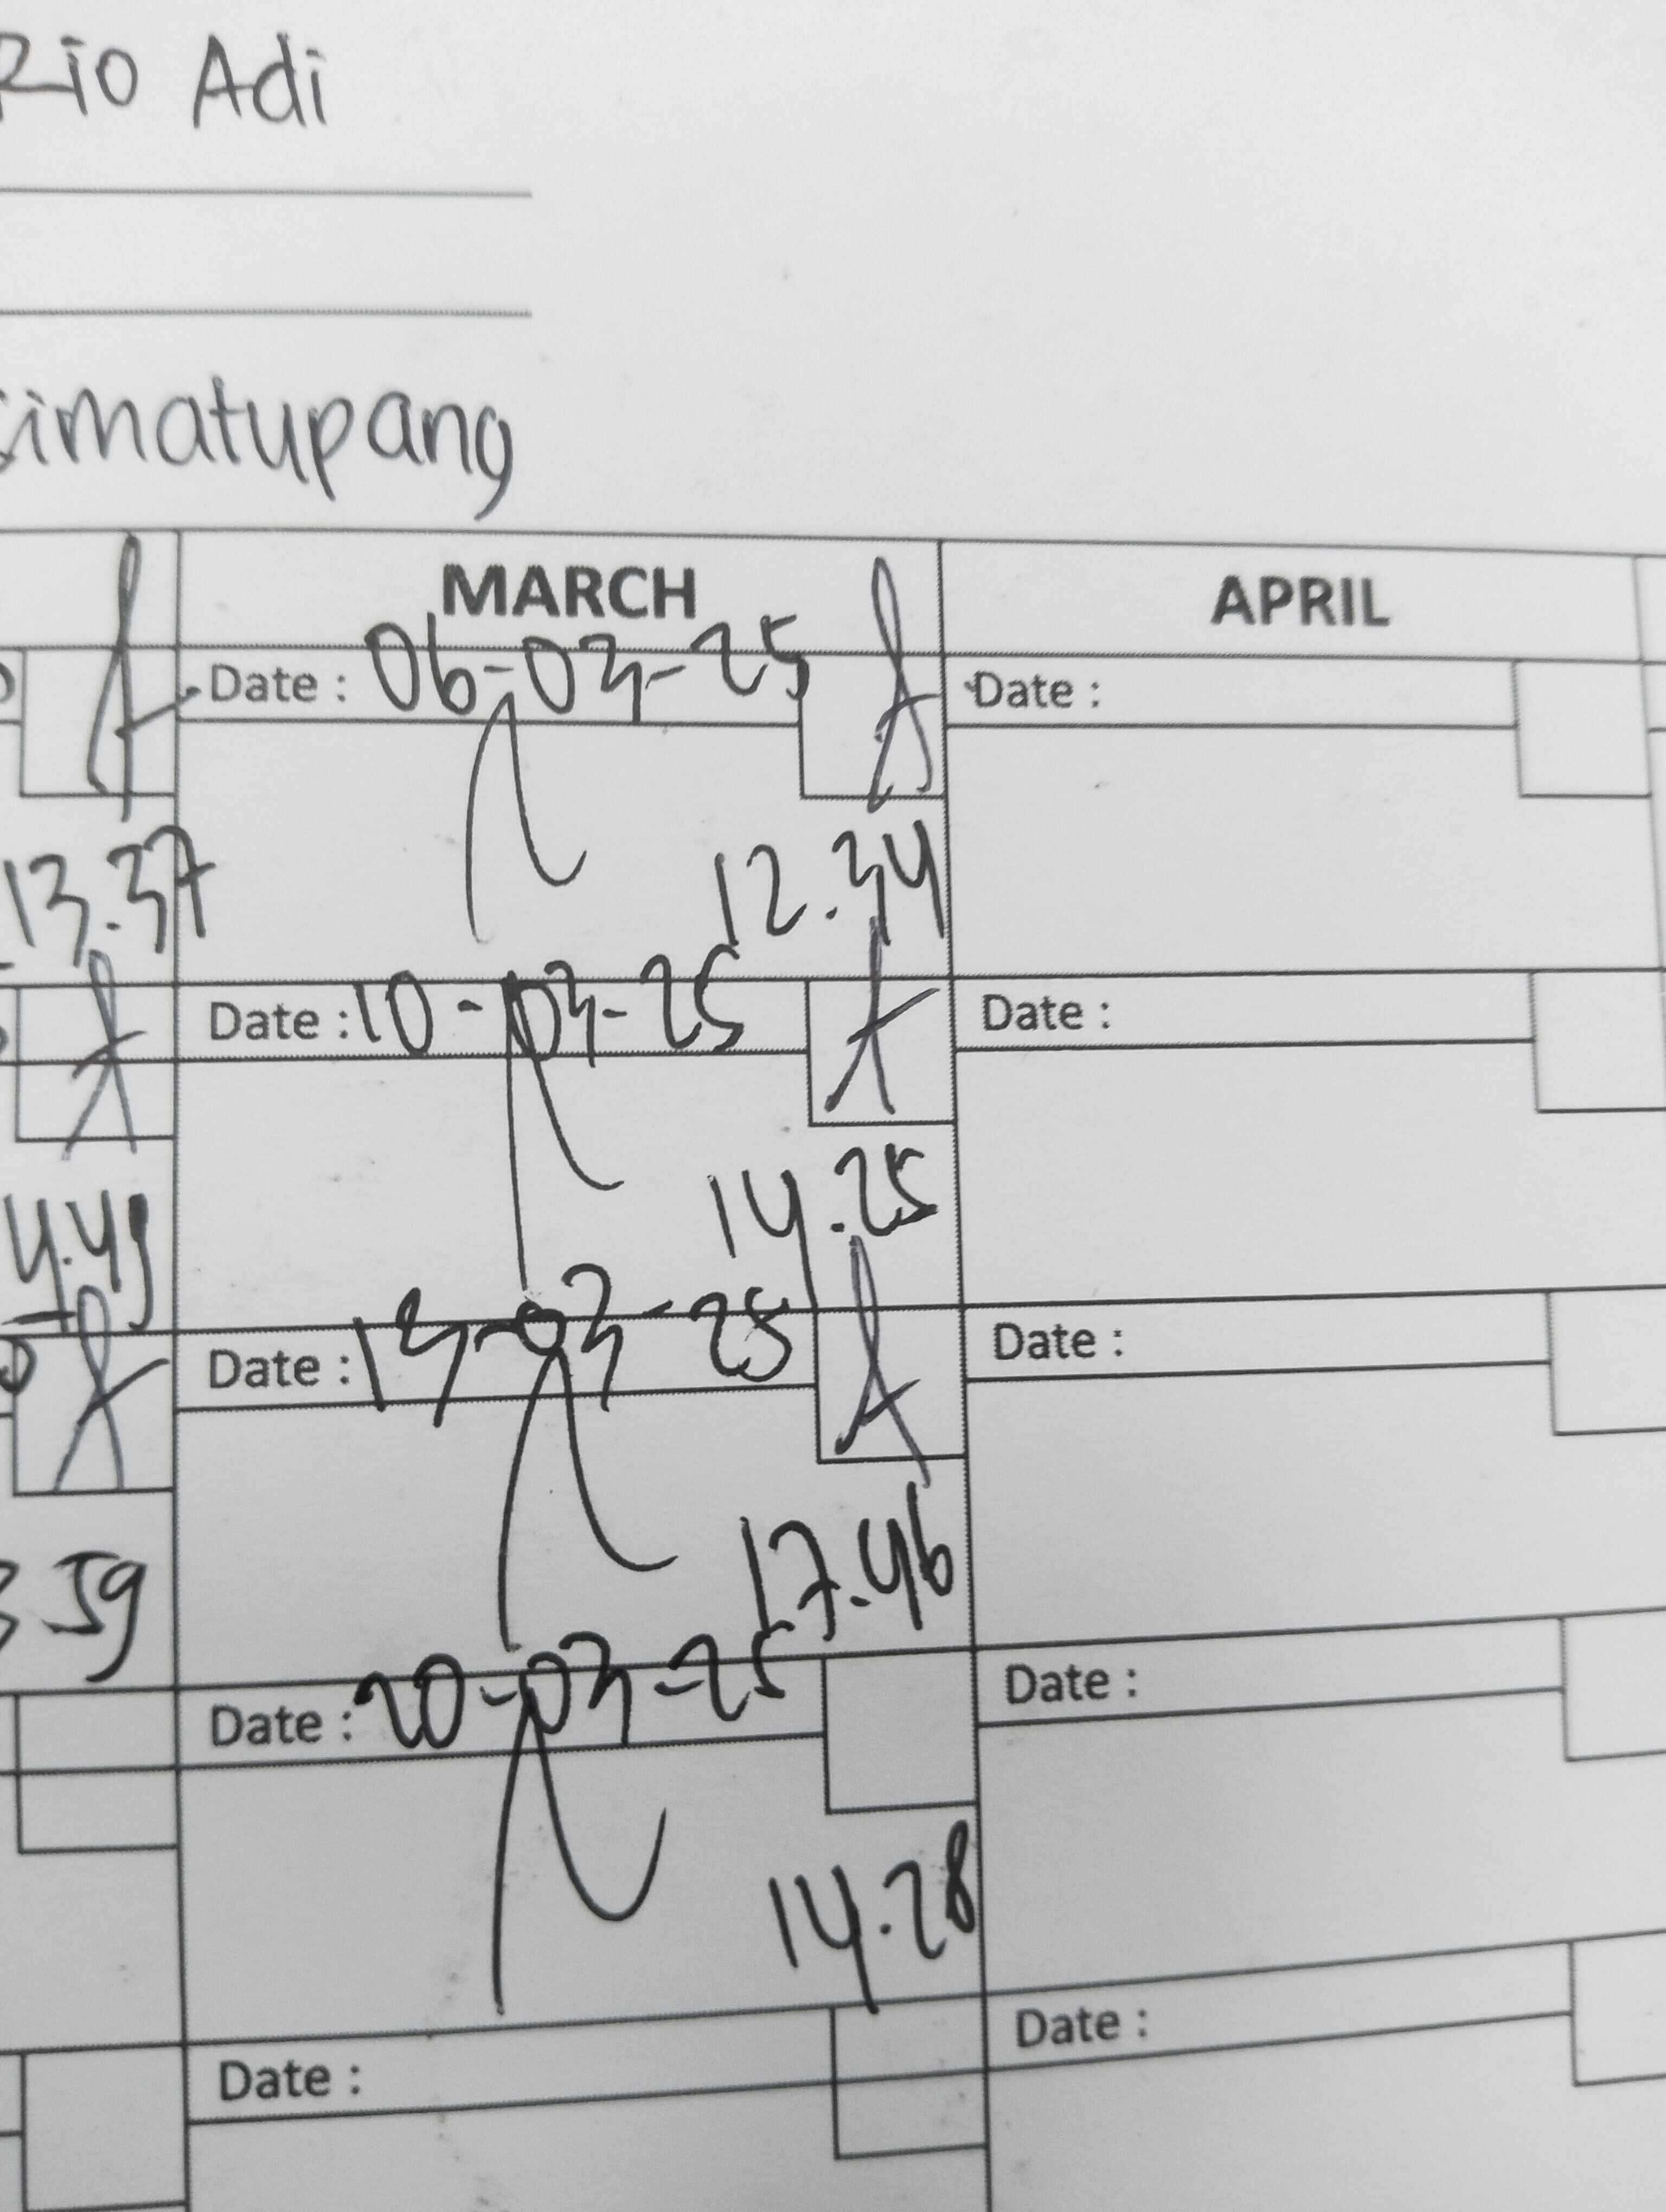 Rio Adi
simatupang
MARCH APRIL
Date : 06-03-25 Date :
13.37 12.34
Date : 10-03-25 Date :
14.25
Date : 13-03-25 Date :
59 17.46
Date : 20-03-25 Date :
14.28
Date : Date :